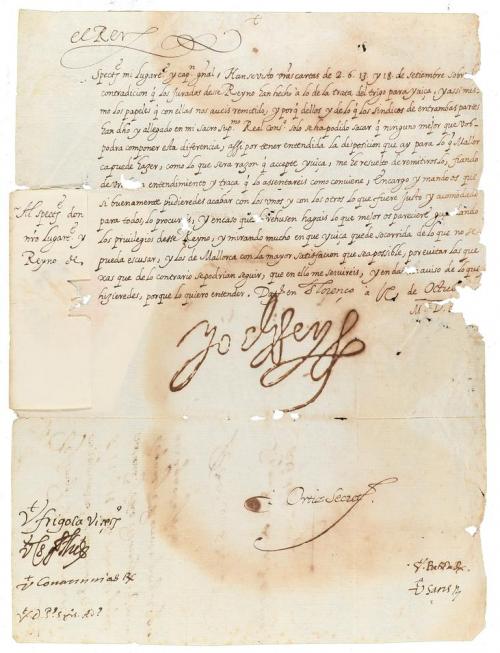 el Rey
Spect.e mi lugart.e y capn gnal, Hanse visto vras cartas de 2. 6. 13. y 18. de Setiembre sobre
contradicion q los Jurados desse Reyno han hecho a lo de la traca del trigo para yuiça, y assi mes
mo los papeles q con ellas nos aueis remitido, y porq dellos y de lo q los sindicos de entrambas partes
han dho y allegado en mi Sacro Supmo Real Conso solo se ha podido sacar q ninguno mejor que vos
podra componer esta diferencia, assi por tener entendida la disposicion que ay para lo q Mallor
ca puede hazer, como lo que sera razon q accepte yuiça, me he resuelto de remetiroslo, fiando
de entendimiento y traca q lo assentareis como conviene, Encargo y mando os que
si buenamente pudieredes acabar con los vnos y con los otros lo que fuere justo y acomodado
para todos, lo procureis, y en caso que rehusen hagais lo que mejor os pareciere
los priuilegios desse Reyno, y mirando mucho en que yuiça quede socorrida de lo que no se
pueda escusar, y los de Mallorca con la mayor satisfacion que sea possible, por euitar las que
xas que de lo contrario se podrian seguir, que en ello me seruireis, y en dar auiso de lo que
hizieredes, porque lo quiero entender. Dat. en S. Lorenço a de Octu
M. D.
Al spect.e don
nro lugart.e y
Reyno de
Yo el Rey
Ortiz Secret.
Vt Frigola Vicecs
Vt Covarruvias R.
Vt Sans R.